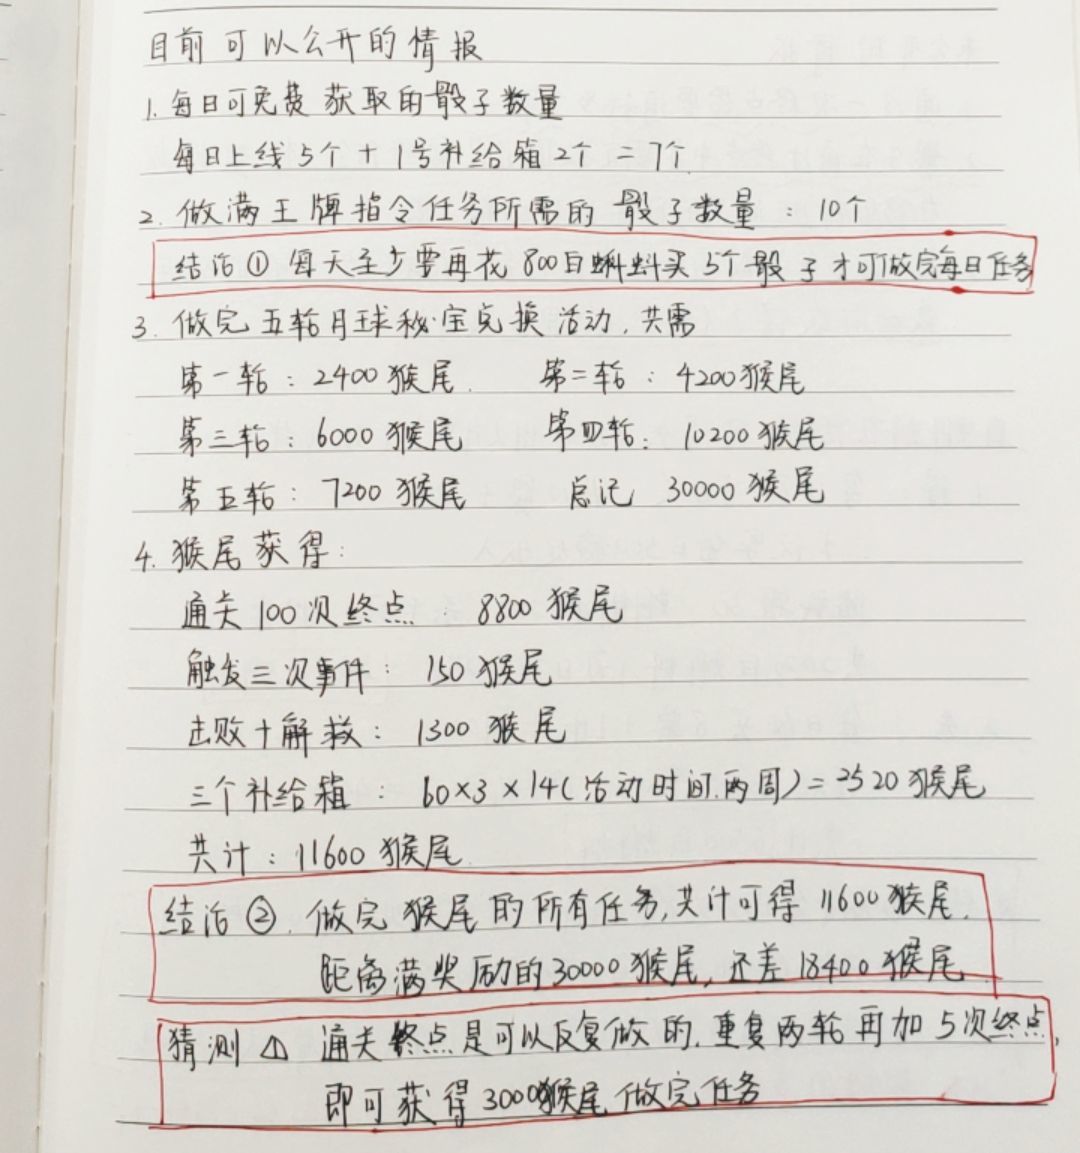 目前可以公开的情报
1. 每日可免费获取的骰子数量
每日上线5个 + 1号补给箱2个 = 7个
2. 做满王牌指令任务所需的骰子数量：10个
结论① 每天至少要再花800白蝌蚪买5个骰子才可做完每日任务
3. 做完五轮月球秘宝兑换活动，共需
第一轮：2400猴尾. 第二轮：4200猴尾
第三轮：6000猴尾 第四轮：10200猴尾
第五轮：7200猴尾 总记 30000猴尾
4. 猴尾获得：
通关100次终点 8800猴尾
触发三次事件：150猴尾
击败+解救：1300猴尾
三个补给箱：60×3×14(活动时间.两周)=2520猴尾
共计：11600猴尾.
结论②. 做完猴尾的所有任务,共计可得11600猴尾.
距离满奖励的30000猴尾,还差18400猴尾
猜测△ 通关终点是可以反复做的.重复两轮再加5次终点,
即可获得3000猴尾做完任务